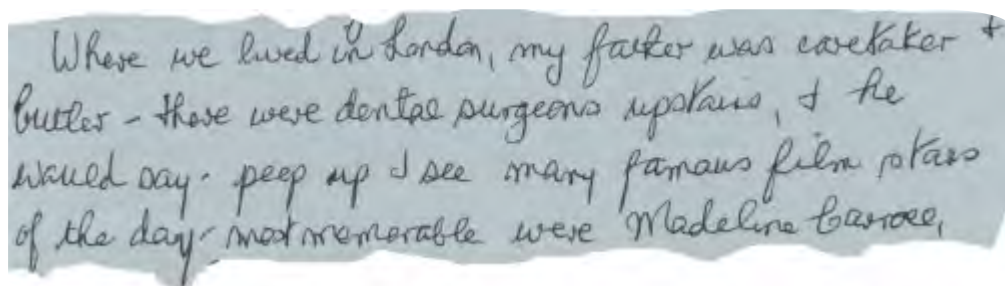 Where we lived in London, my father was caretaker &
butler - there were dental surgeons upstairs, & he
would say - peep up & see many famous film stars
of the day - most memorable were Madeline Carroll,